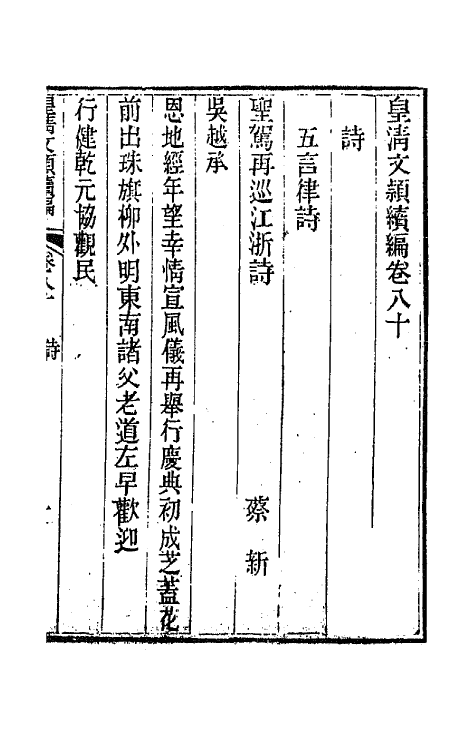 皇清文穎續編卷八十
詩
五言律詩
聖駕再巡江浙詩 蔡新
吳越承
恩地經年望幸情宣風儀再舉行慶典初成芝蓋花
前出珠旗柳外明東南諸父老道左早歡迎
行健乾元協觀民
皇清文穎續編 卷八十 詩